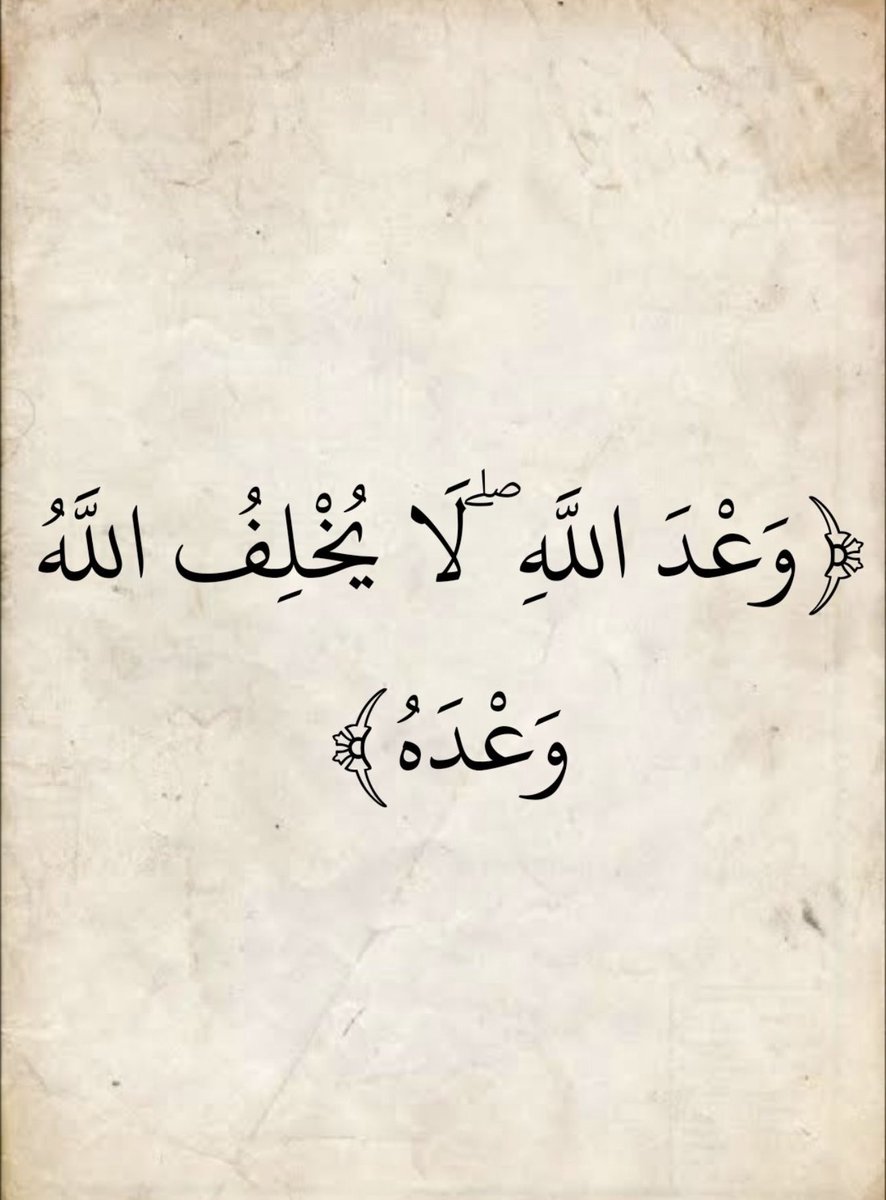 ﴿وَعْدَ اللَّهِ ۖ لَا يُخْلِفُ اللَّهُ
وَعْدَهُ﴾